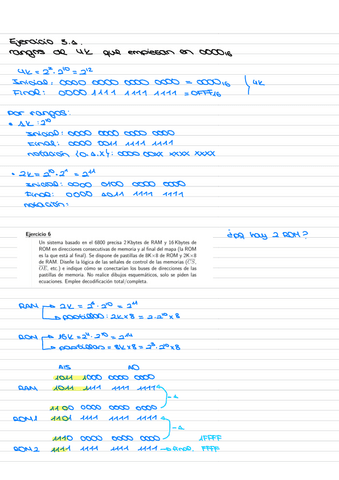 Ejercicio 3.a.
rangos de 4K que empiesan en 0000₁₆
4K = 2² · 2¹⁰ = 2¹²
Inicial: 0000 0000 0000 0000 = 0000₁₆
Final: 0000 1111 1111 1111 = 0FFF₁₆
4K
por rangos:
• 1K : 2¹⁰
Inicial: 0000 0000 0000 0000
Final: 0000 0011 1111 1111
notación (0.a.X): 0000 00XX XXXX XXXX
• 2K = 2¹⁰ · 2¹ = 2¹¹
Inicial: 0000 0100 0000 0000
Final: 0000 1011 1111 1111
notación:
Ejercicio 6
¿por hay 2 ROM?
Un sistema basado en el 6800 precisa 2 Kbytes de RAM y 16 Kbytes de
ROM en direcciones consecutivas de memoria y al final del mapa (la ROM
es la que está al final). Se dispone de pastillas de 8K×8 de ROM y 2K×8
de RAM. Diseñe la lógica de las señales de control de las memorias (CS,
OE, etc.) e indique cómo se conectarían los buses de direcciones de las
pastillas de memoria. No realice dibujos esquemáticos, solo se piden las
ecuaciones. Emplee decodificación total/completa.
RAM → 2K = 2¹ · 2¹⁰ = 2¹¹
→ pastillas: 2K×8 = 2·2¹⁰×8
ROM → 16K = 2⁴ · 2¹⁰ = 2¹⁴
→ pastillas = 8K×8 = 2³ · 2¹⁰×8
A15 A0
1011 1000 0000 0000
RAM 1011 1111 1111 1111
-1
1100 0000 0000 0000
ROM1 1101 1111 1111 1111
-1
1110 0000 0000 0000 1FFFF
ROM2 1111 1111 1111 1111 → FFFF